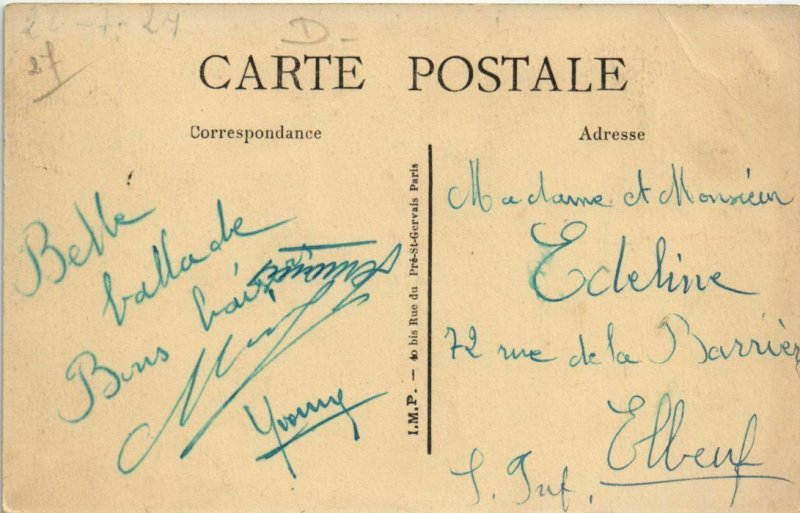 27
D-
CARTE POSTALE
Correspondance
Adresse
Belle
ballade
Bons
Yvonne
I.M.P. — 40 bis Rue du Pré-St-Gervais Paris
Madame et Monsieur
Edeline
72 rue de la Barrière
Elbeuf
S. Inf.